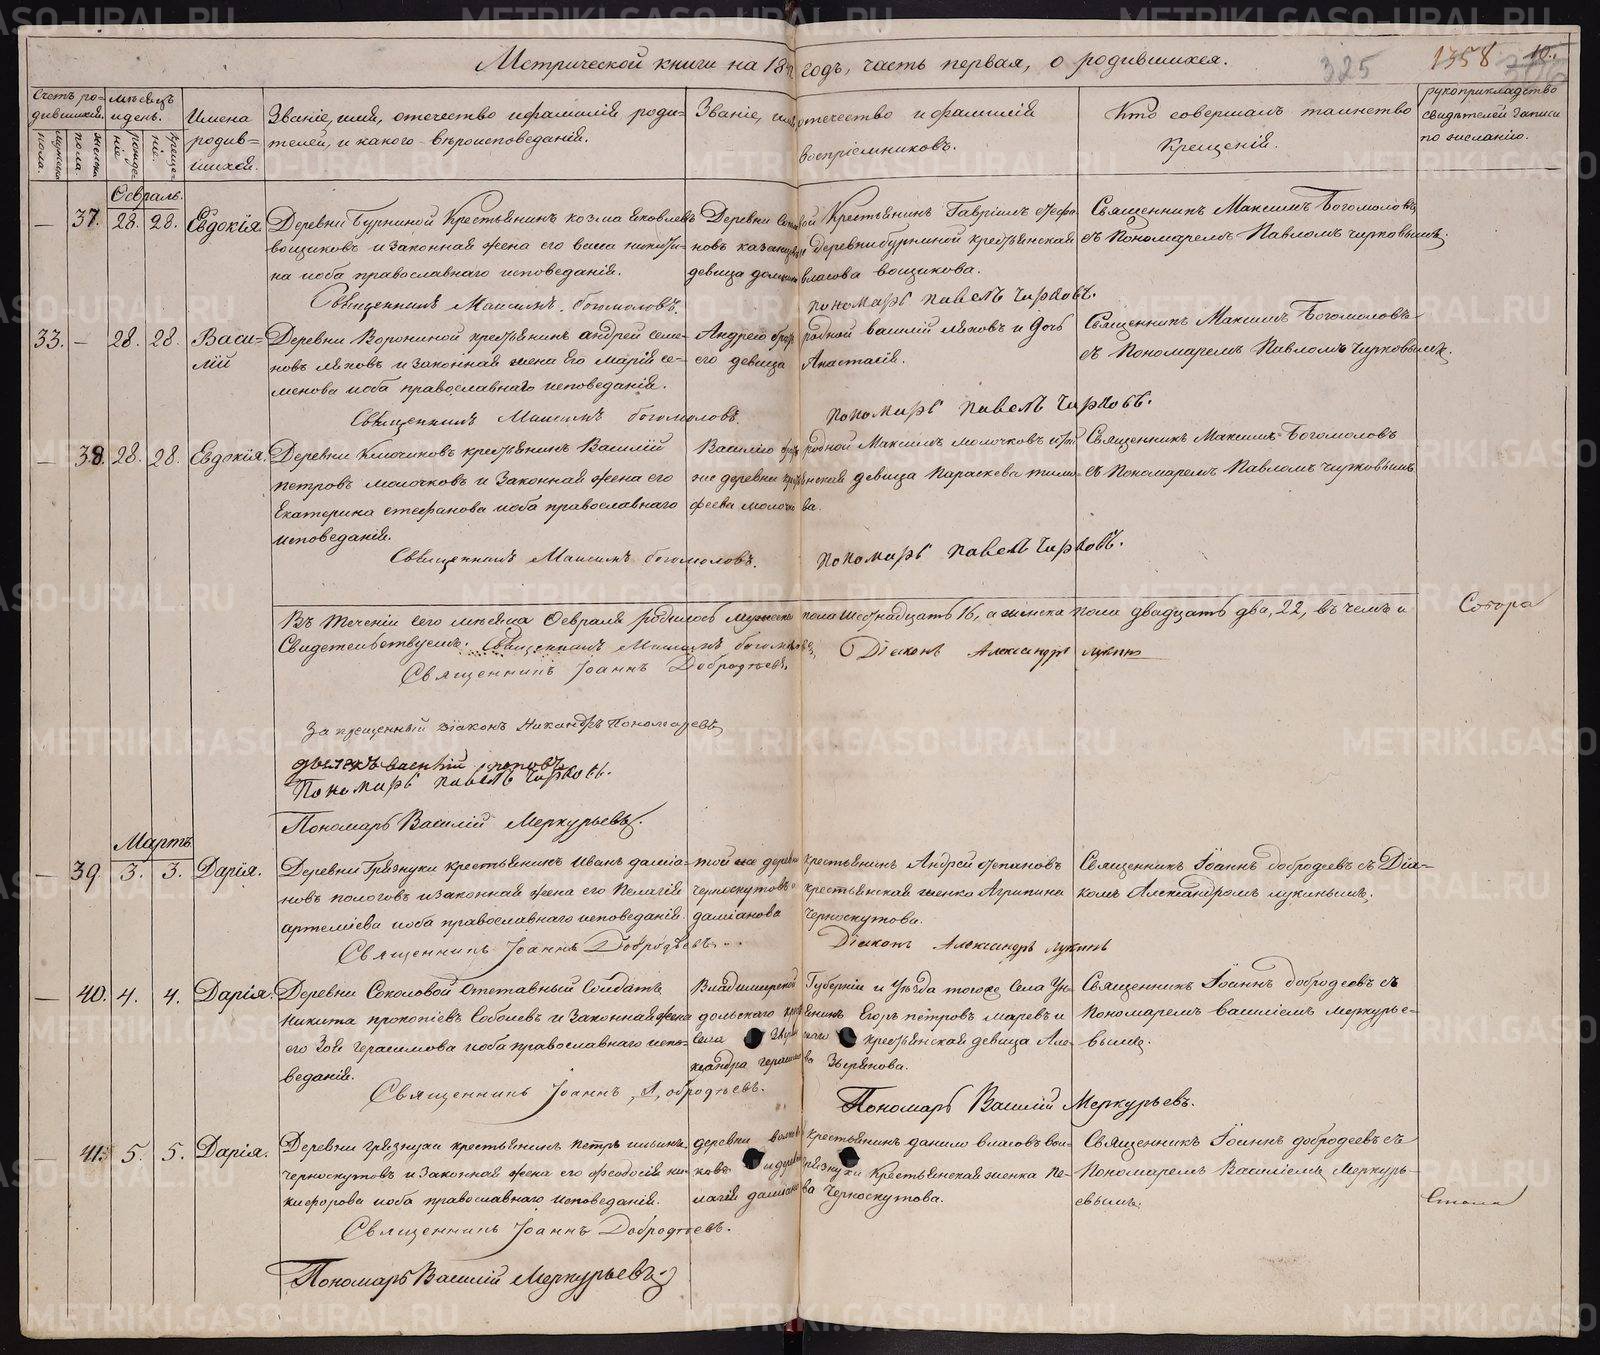 Метрической книги на 18 годъ, часть первая, о родившихся.
325
1358
10.
Счетъ родившихся.
мужеска пола.
женска пола
мѣсяцъ и день.
рожденіе
крещеніе.
Имена родившихся.
Званіе, имя, отечество и фамилія родителей, и какого вѣроисповеданія.
Званіе, имя, отечество и фамилія воспріемниковъ.
Кто совершалъ таинство Крещенія.
рукоприкладство свидѣтелей записи по желанію.
Февраль.
— 37. 28. 28. Евдокія.
Деревни Бурниной Крестьянинъ козма яковлевъ
вощиковъ и законная жена его васа никити-
на иоба православнаго исповеданія.
Деревни Крестьянинъ Гавріилъ
новъ Деревни бурниной крестьянская
девица власова вощикова.
Священникъ Максимъ Богомоловъ
съ Пономаремъ Павломъ чирковымъ.
Священникъ Максимъ богомоловъ.
пономарь павелъ Чирковъ.
33. — 28. 28. Васи-
лій
Деревни Ворониной крестьянинъ андрей семе-
новъ ляховъ и законная жена Его марія се-
менова иоба православнаго исповеданія.
Андрею родной василій ляховъ и дочь
его девица Анастасія.
Священникъ Максимъ Богомоловъ
съ Пономаремъ Павломъ чирковымъ.
Священникъ Максимъ богомоловъ.
пономарь павелъ Чирковъ.
— 38. 28. 28. Евдокія.
Деревни Ключиковъ крестьянинъ Василій
петровъ молочковъ и Законная жена его
Екатерина стефанова иоба православнаго
исповеданія.
Василію родной Максимъ молочковъ
же деревни девица Параскева тимо-
феева молочкова.
Священникъ Максимъ Богомоловъ
съ Пономаремъ Павломъ чирковымъ
Священникъ Максимъ богомоловъ.
пономарь павелъ Чирковъ.
Въ теченіи сего мѣсяца Февраля родилось мужеска пола шестнадцать 16, а женска пола двадцать два, 22, въ чемъ и
Свидетельствуемъ. Священникъ Максимъ богомоловъ, Діаконъ Александръ лукинъ
Священникъ Іоаннъ Добродѣевъ.
Запрещенный діаконъ Никандръ Пономаревъ
дьячекъ василій поповъ
Пономарь павелъ Чирковъ.
Пономарь Василій Меркурьевъ.
Мартъ
— 39 3. 3. Дарія.
Деревни Грязнухи крестьянинъ иванъ даміа-
новъ пологовъ и законная жена его Пелагія
артеміева иоба православнаго исповеданія.
той же деревни крестьянинъ Андрей степановъ
черноскутовъ и крестьянская женка Агрипина
даміанова Черноскутова.
Священникъ Іоаннъ добродеевъ съ Діа-
кономъ Александромъ лукинымъ.
Священникъ Іоаннъ Добродѣевъ.
Діаконъ Александръ лукинъ
— 40. 4. 4. Дарія.
Деревни Соколовой Отставный Солдатъ
Никита прокопіевъ Соболевъ и Законная жена
его Зоя Герасимова иоба православнаго испо-
веданія.
Владимирской Губерніи и Уѣзда тогоже Села
Егоръ петровъ маревъ и
села крестьянская девица Але-
ксандра герасимова Зырянова.
Священникъ Іоаннъ добродеевъ съ
Пономаремъ василіемъ меркурье-
вымъ.
Священникъ Іоаннъ Добродѣевъ.
Пономарь Василій Меркурьевъ.
— 41. 5. 5. Дарія.
Деревни грязнухи крестьянинъ петръ ильинъ
черноскутовъ и Законная жена его феодосія ни-
кифорова иоба православнаго исповеданія.
деревни крестьянинъ данило власовъ вои-
ковъ и деревни грязнухи Крестьянская женка Пе-
лагія даміанова Черноскутова.
Священникъ Іоаннъ добродеевъ съ
Пономаремъ Василіемъ Меркурь-
евымъ.
Священникъ Іоаннъ Добродѣевъ.
Пономарь Василій Меркурьевъ
METRIKI.GASO-URAL.RU